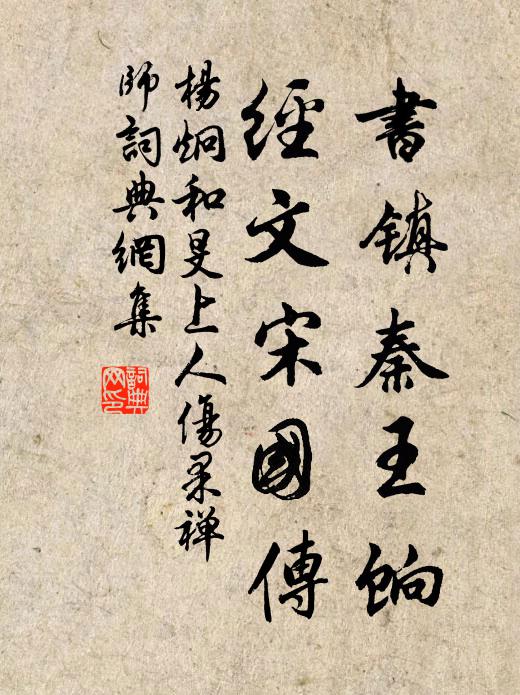 書鎮秦王餉
經文宋國傳
楊炯和旻上人傷果禪
師詞典網集
詞典網印